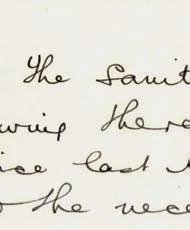 The Sanit
owing there
ice last
the nece